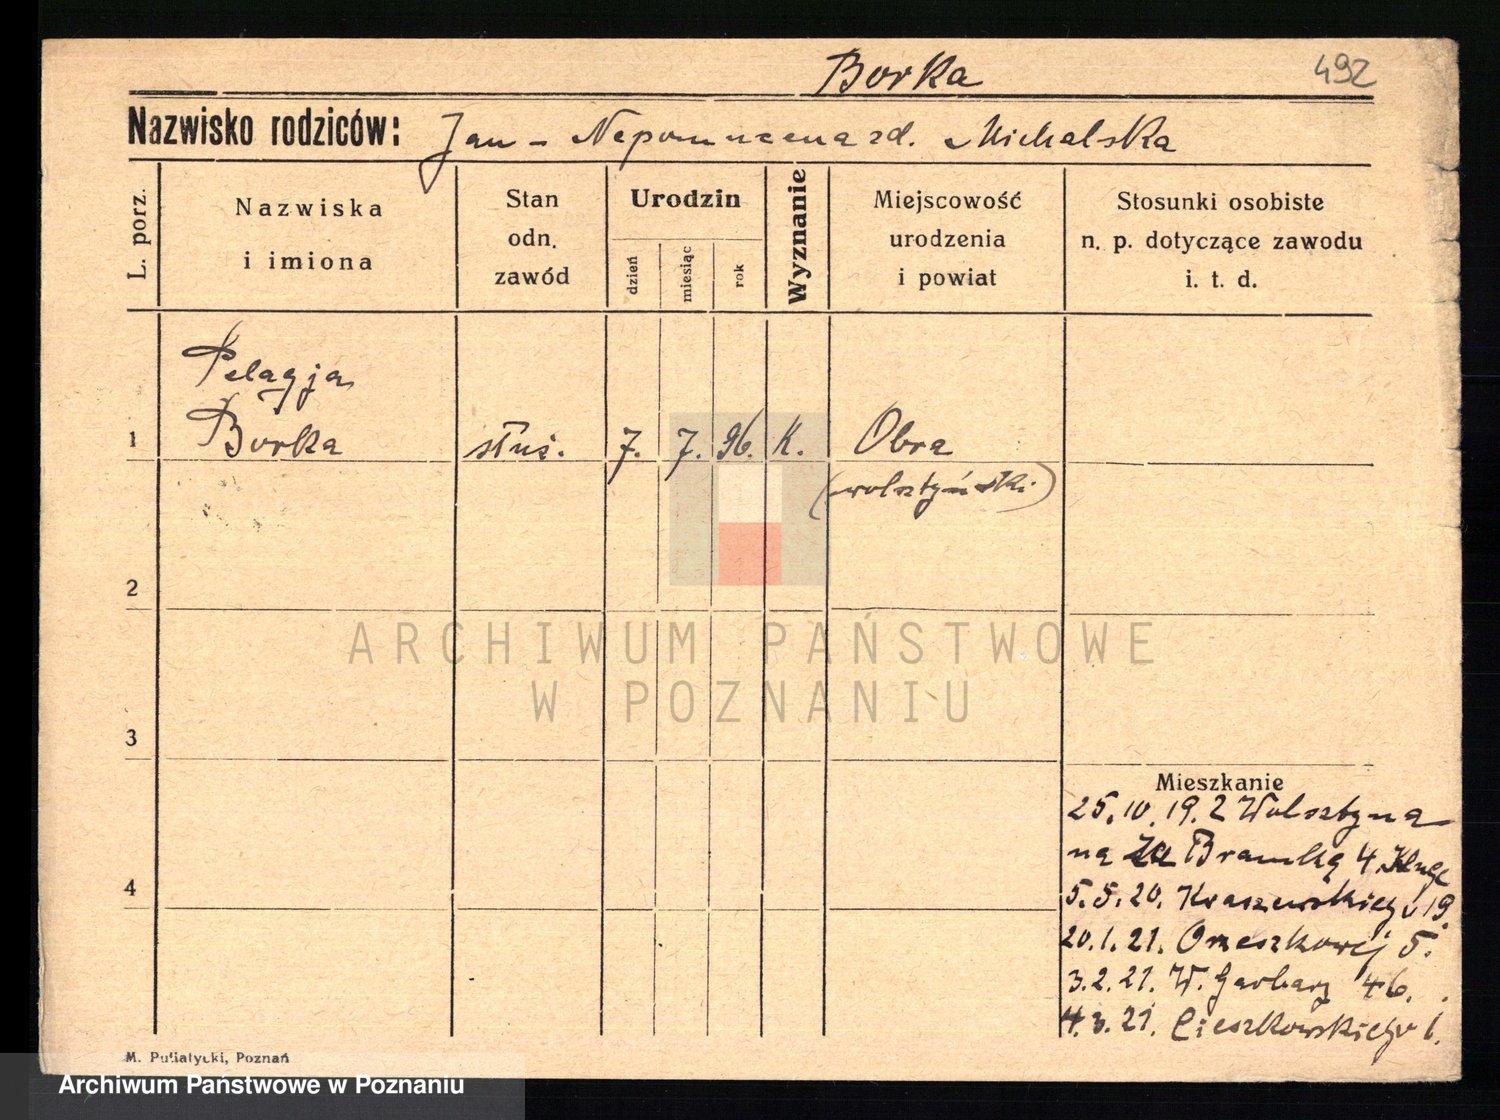 Borka
492
Nazwisko rodziców: Jan - Nepomucena zd. Michalska
L. porz.
Nazwiska
i imiona
Stan
odn.
zawód
Urodzin
dzień
miesiąc
rok
Wyznanie
Miejscowość
urodzenia
i powiat
Stosunki osobiste
n. p. dotyczące zawodu
i. t. d.
Pelagja
1 Borka służ. 7. 7. 96. K. Obra
(wolsztyński)
2
3
4
Mieszkanie
25.10.19. z Wolsztyna
na Bramką 4
5.5.20. Kraszewskiego 19.
20.1.21. Orzeszkowej 5.
3.2.21. W. Garbary 46.
4.3.21. Cieszkowskiego 1.
M. Putiatycki, Poznań
ARCHIWUM PAŃSTWOWE
W POZNANIU
Archiwum Państwowe w Poznaniu